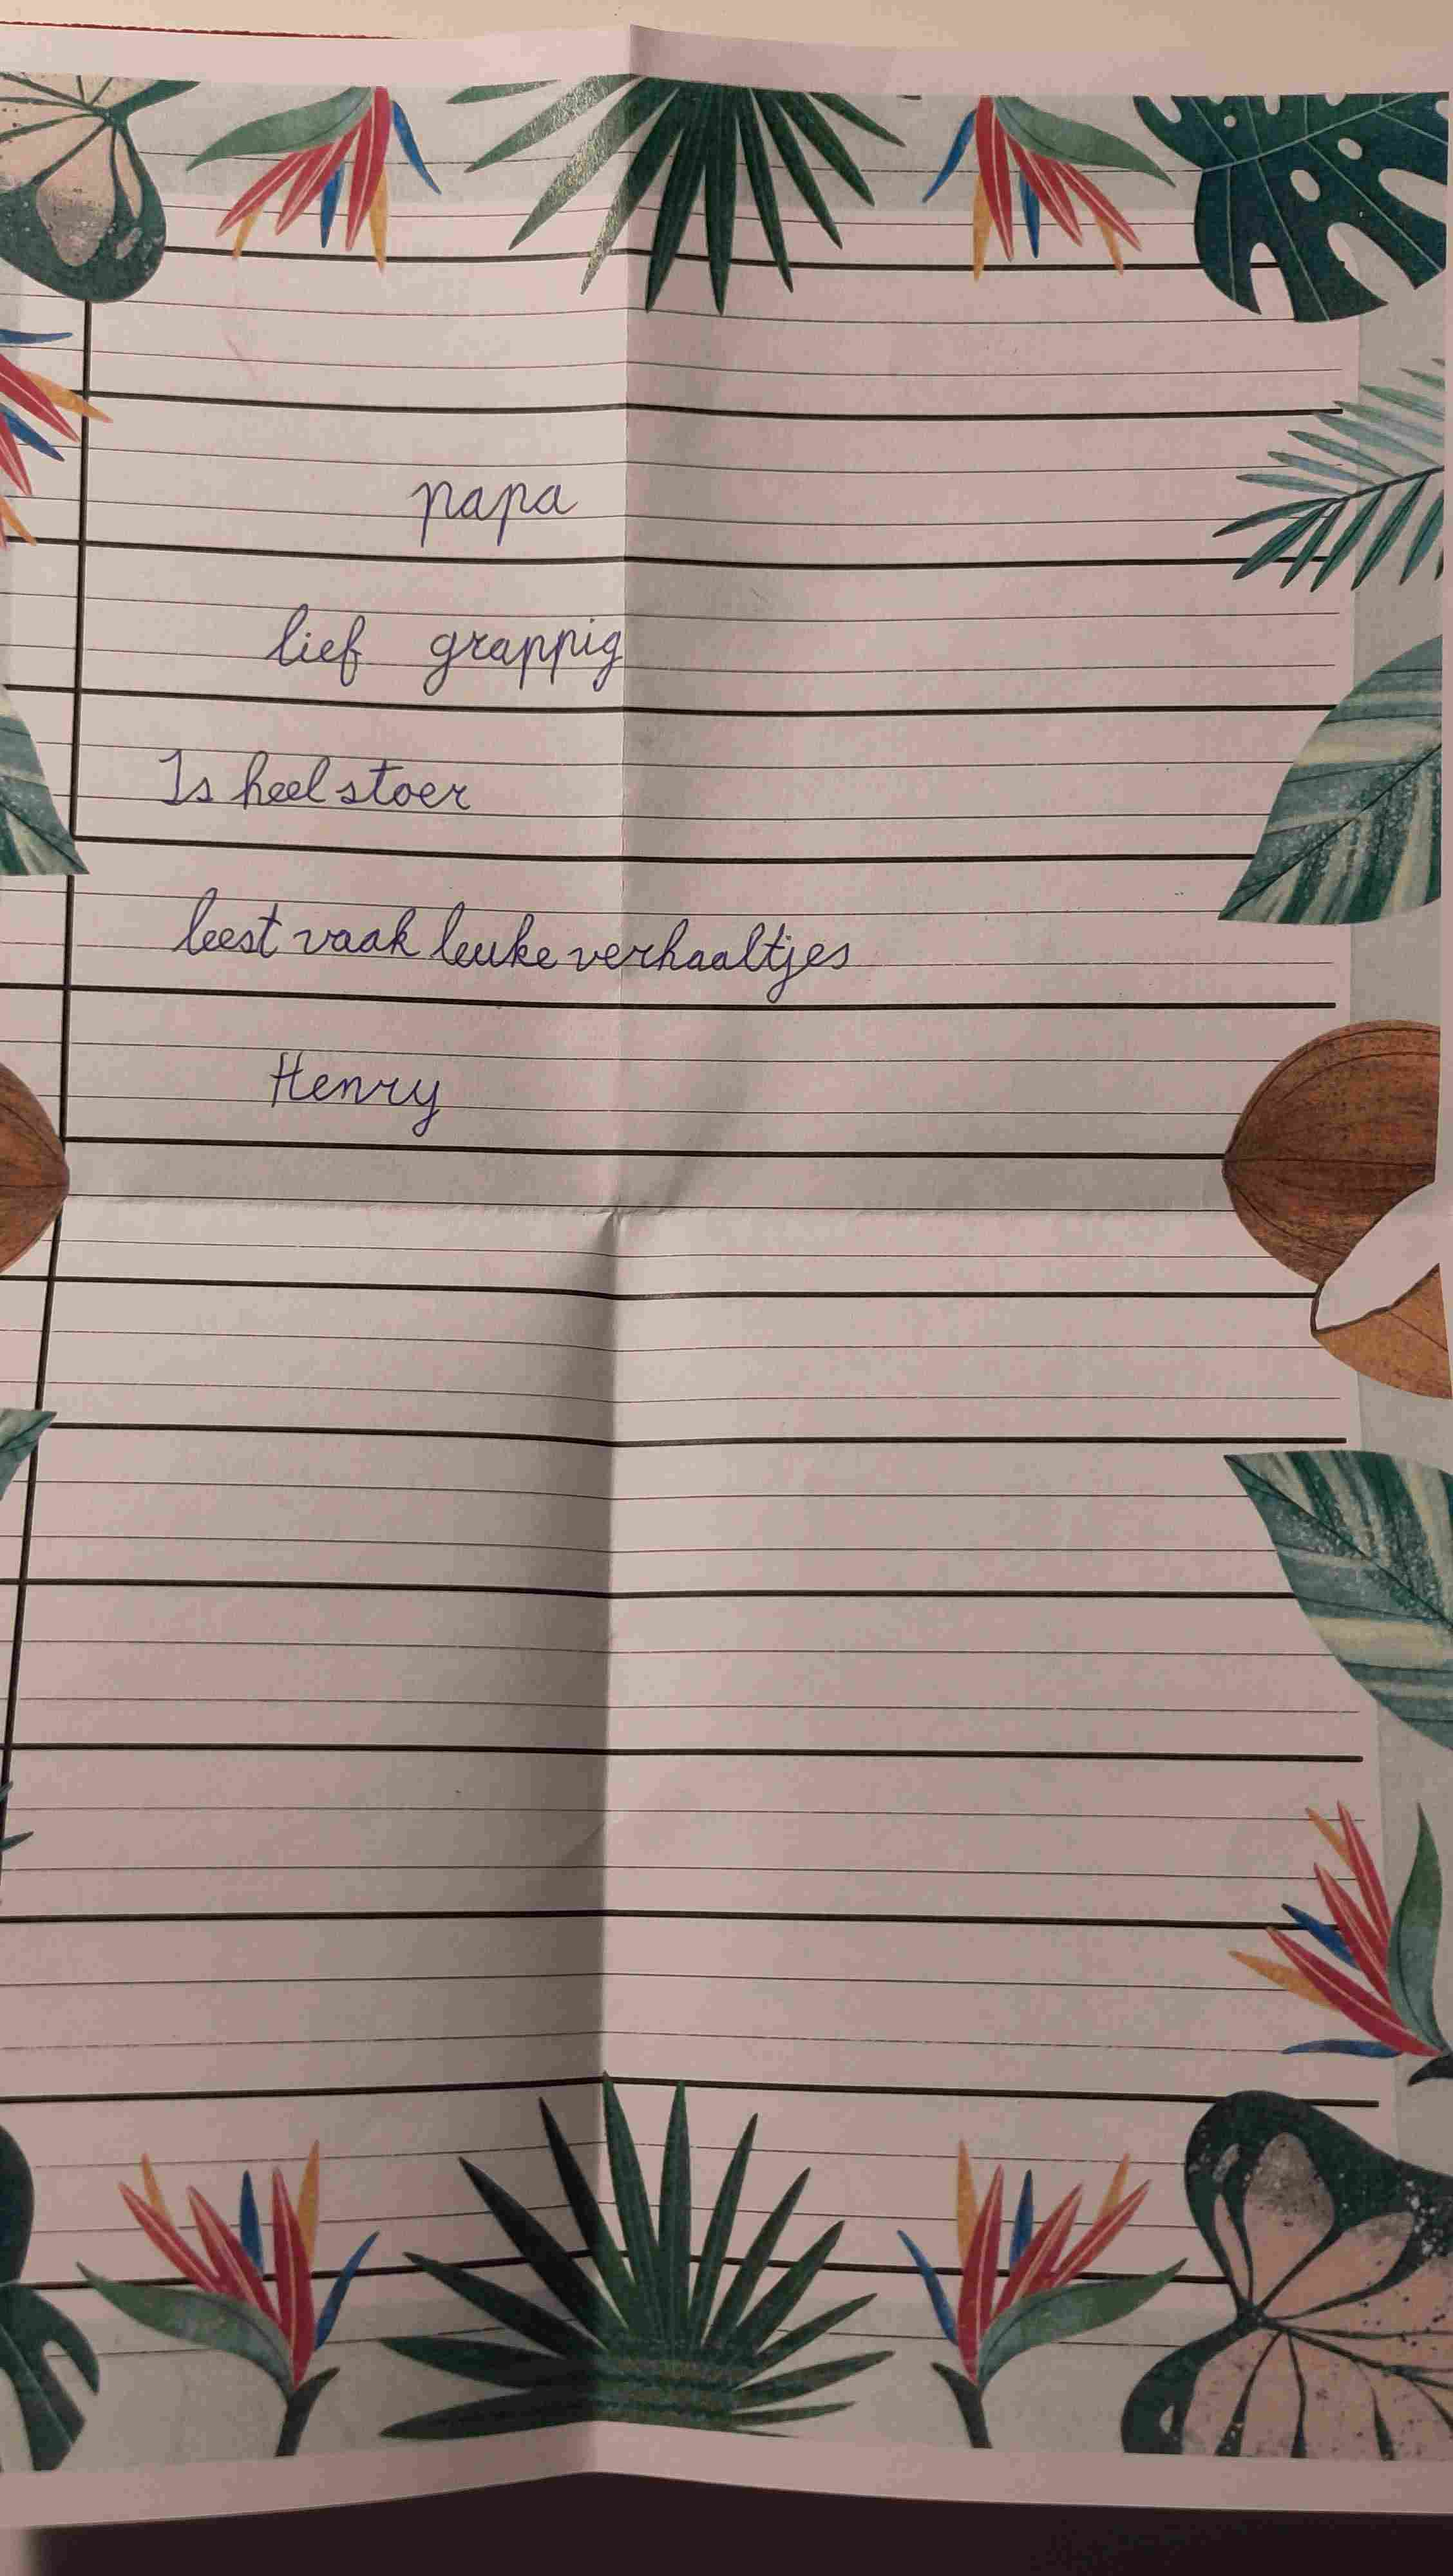 papa
lief grappig
Is heel stoer
leest vaak leuke verhaaltjes
Henry